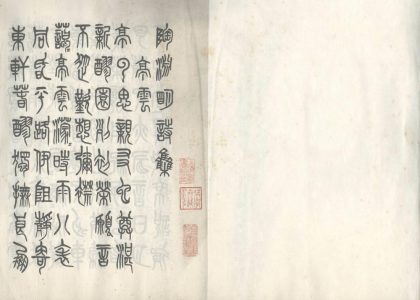 陶淵明詩集
亭雲
亭乃思親友也尊湛
新醪園列初榮願言
不從歎想彌襟
藹亭雲濛時雨八表
同昏平路伊阻靜寄
東軒春醪獨撫良朋